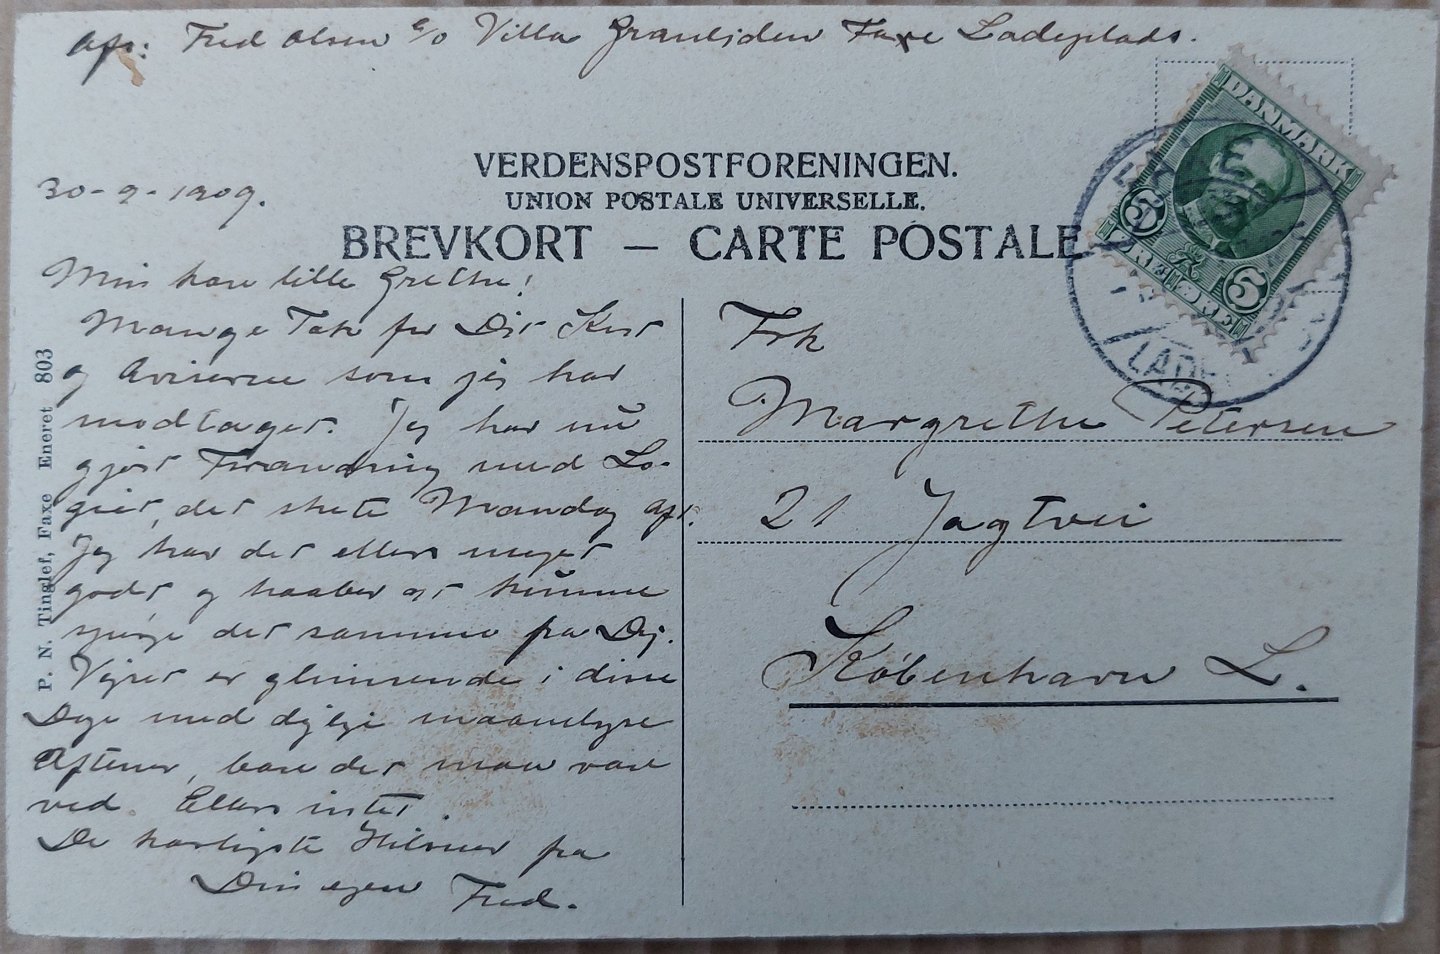 Afs: Fred Olsen c/o Villa Granlyden Faxe Ladeplads.
VERDENSPOSTFORENINGEN.
UNION POSTALE UNIVERSELLE.
BREVKORT — CARTE POSTALE
DANMARK
5 ØRE 5
LADE
30-9-1909.
Min kære lille Grethe!
Mange Tak for Dit Kort
og Aviserne som jeg har
modtaget. Jeg har nu
gjort Forandring med Lo-
giet, det skete Mandag Aft.
Jeg har det ellers meget
godt og haaber at kunne
spørge det samme fra Dig.
Vejret er glimrende i disse
Dage med dejlige maanelyse
Aftener, bare det maa vare
ved. Ellers intet.
De kærligste Hilsner fra
Din egen Fred.
P. N. Tinglef, Faxe Eneret 803
Frk
Margrethe Petersen
21 Jagtvei
København L.